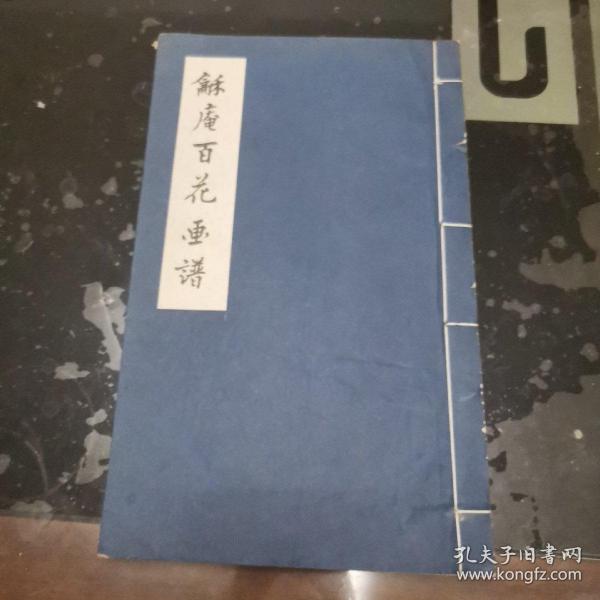 龢庵百花画譜
孔夫子旧書网
www.kongfz.com